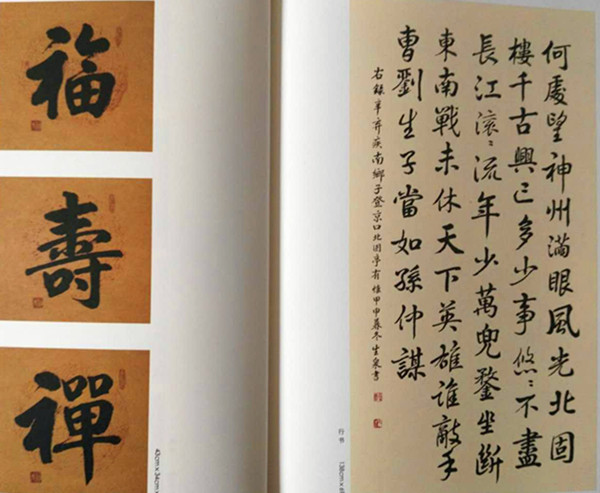 福
壽
禪
42cm×34cm×
何處望神州滿眼風光北固
樓千古興亡多少事悠〻不盡
長江滾〻流年少萬兜鍪坐斷
東南戰未休天下英雄誰敵手
曹劉生子當如孫仲謀
右錄辛弃疾南鄉子登京口北固亭有懷甲申暮冬生泉書
行书
138cm×